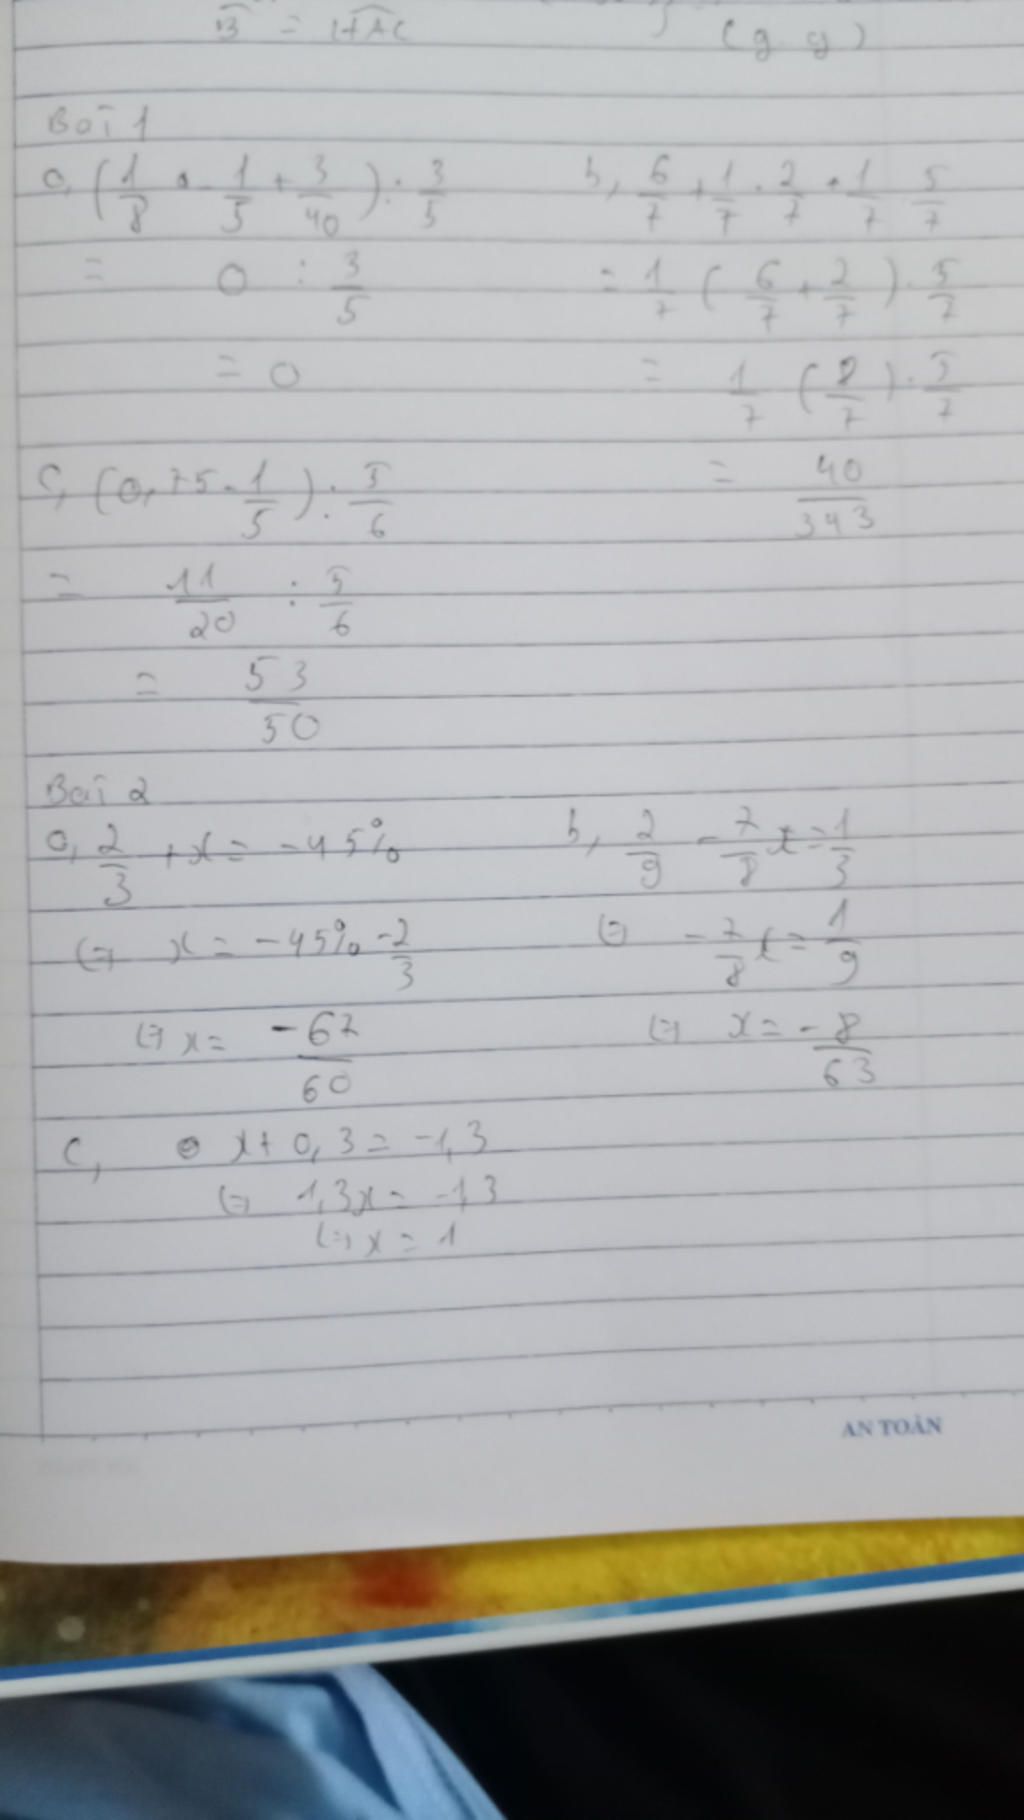 B̂ = HÂC } (g.g)
Bài 1
a, (1/8 - 1/5 + 3/40) : 3/5
= 0 : 3/5
= 0
b, 6/7 + 1/7 . 2/7 + 1/7 . 5/7
= 1/7 (6/7 + 2/7) . 5/7
= 1/7 (8/7) . 5/7
= 40/343
c, (0,75 - 1/5) : 5/6
= 11/20 : 5/6
= 53/50
Bài 2
a, 2/3 + x = -45%
(=) x = -45% - 2/3
(=) x = -67/60
b, 2/9 - 7/8 x = 1/3
(=) -7/8 x = 1/9
(=) x = -8/63
c, x + 0,3 = -1,3
(=) 1,3x = -1,3
(=) x = 1
AN TOÀN